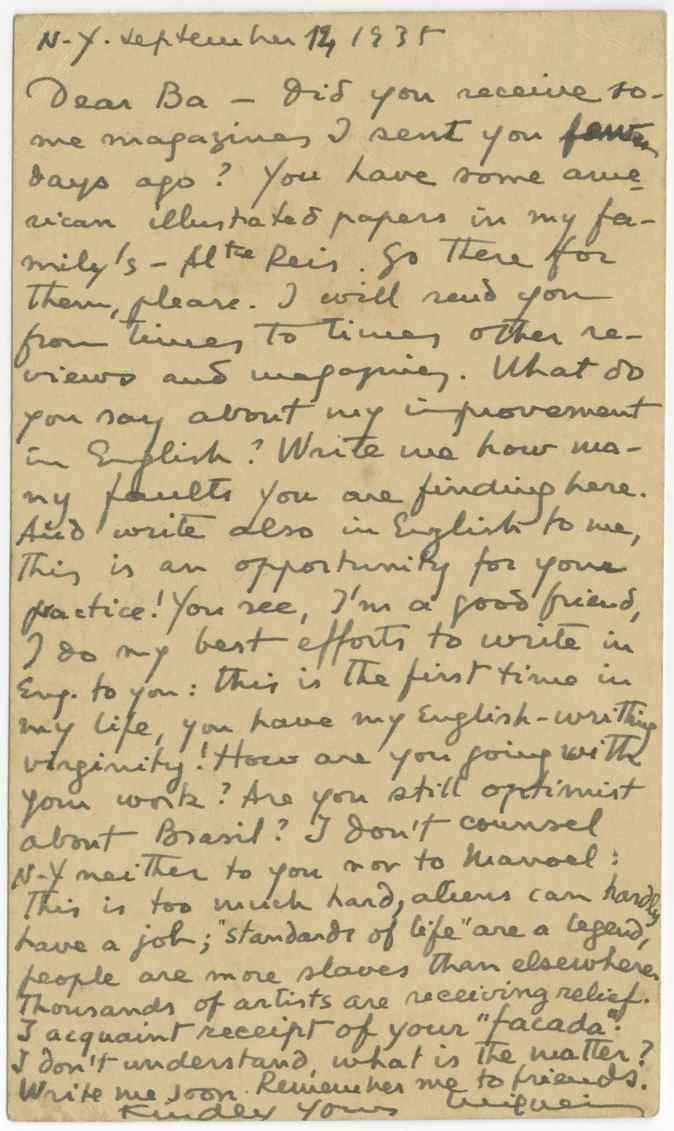 N-Y. september 14, 1935
Dear Ba - Did you receive so-
me magazines I sent you
days ago? You have some ame-
rican illustrated papers in my fa-
mily's - Al.te Reis. Go there for
them, please. I will send you
from times to times other re-
views and magazines. What do
you say about my improvement
in English? Write me how ma-
ny faults you are finding here.
And write also in English to me,
this is an opportunity for your
practice! You see, I'm a good friend,
I do my best efforts to write in
Eng. to you: this is the first time in
my life, you have my English-writing
virginity! How are you going with
your work? Are you still optimist
about Brasil? I don't counsel
N-Y neither to you nor to Manoel:
This is too much hard, aliens can hardly
have a job; "standards of life" are a legend,
people are more slaves than elsewhere.
Thousands of artists are receiving relief.
I acquaint receipt of your "facada".
I don't understand, what is the matter?
Write me soon. Remember me to friends.
Kindly Yours